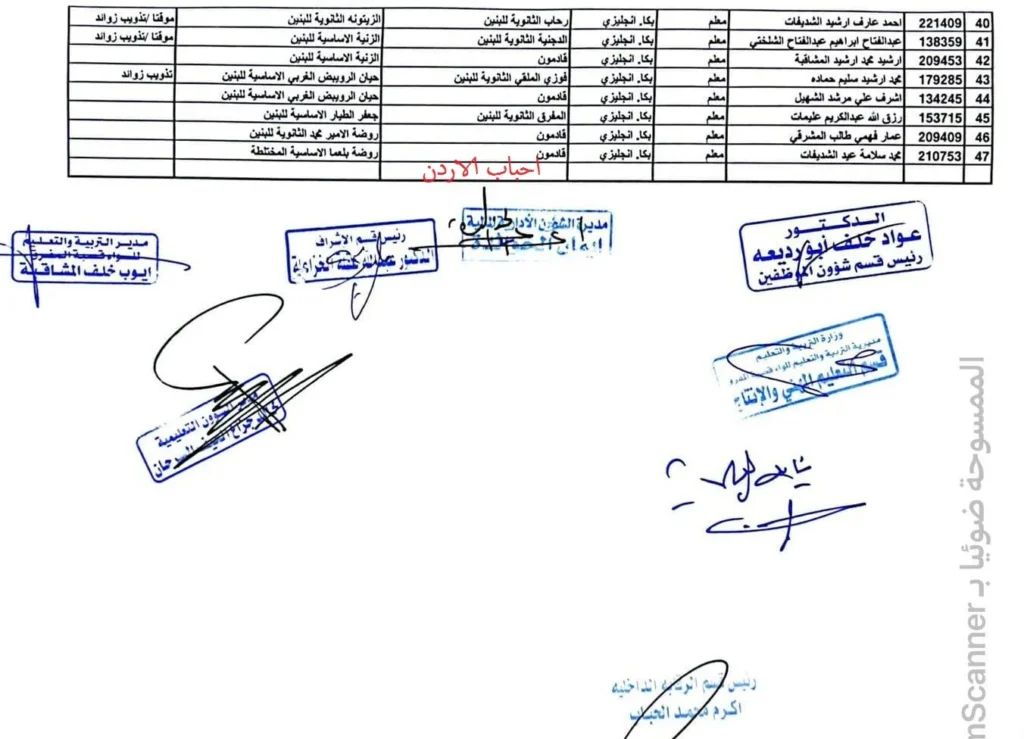 40 221409 احمد عارف ارشيد الشديفات معلم بكا. انجليزي رحاب الثانوية للبنين الزيتونه الثانوية للبنين موقتا /تذويب زوائد
41 138359 عبدالفتاح ابراهيم عبدالفتاح الشلختي معلم بكا. انجليزي الدجنية الثانوية للبنين الزنية الاساسية للبنين موقتا /تذويب زوائد
42 209453 ارشيد محمد ارشيد المشاقبة معلم بكا. انجليزي قادمون الزنية الاساسية للبنين
43 179285 محمد ارشيد سليم حماده معلم بكا. انجليزي فوزي الملقي الثانوية للبنين حيان الرويبض الغربي الاساسية للبنين تذويب زوائد
44 134245 اشرف علي مرشد الشهيل معلم بكا. انجليزي قادمون حيان الرويبض الغربي الاساسية للبنين
45 153715 رزق الله عبدالكريم عليمات معلم بكا. انجليزي المفرق الثانوية للبنين جعفر الطيار الاساسية للبنين
46 209409 عمار فهمي طالب المشرقي معلم بكا. انجليزي قادمون روضة الامير محمد الثانوية للبنين
47 210753 محمد سلامة عيد الشديفات معلم بكا. انجليزي قادمون روضة بلعما الاساسية المختلطة
احباب الاردن
الدكتور
عواد خلف ابو رديعه
رئيس قسم شؤون الموظفين
مدير الشؤون الادارية المالية
رئيس قسم الاشراف
الدكتور
مدير التربية والتعليم
للواء قصبة المفرق
ايوب خلف المشاقبة
وزارة التربية والتعليم
مديرية التربية والتعليم للواء قصبة المفرق
قسم التعليم المهني والإنتاج
الشؤون التعليمية
السرحان
رئيس قسم الرقابه الداخليه
اكرم محمد الحباب
الممسوحة ضوئيا بـ nScanner